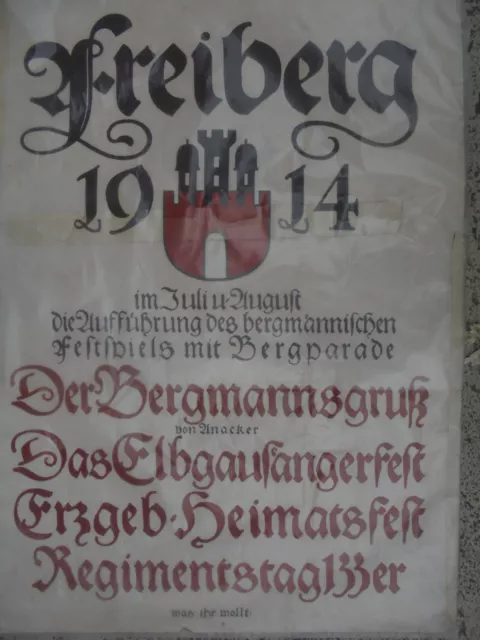 Freiberg
1914
im Juli u. August
die Aufführung des bergmännischen
Festspiels mit Bergparade
Der Bergmannsgruß
von Anacker
Das Elbgausängerfest
Erzgeb. Heimatsfest
Regimentstag 133er
was ihr wollt.